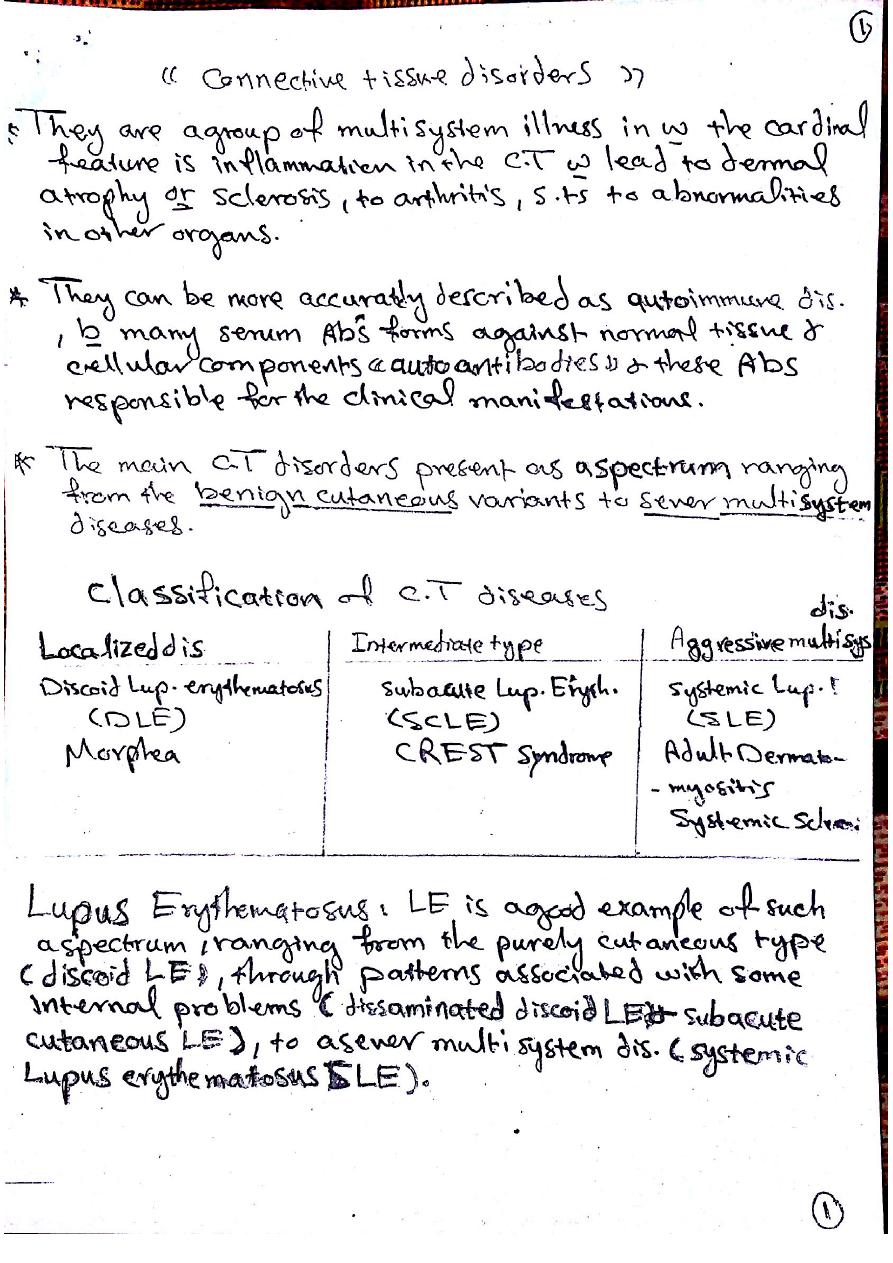 1
(( Connective tissue disorders ))
* They are a group of multisystem illness in w the cardinal
feature is inflammation in the C.T w lead to dermal
atrophy or sclerosis, to arthritis, s.ts to abnormalities
in other organs.
* They can be more accuratly described as autoimmune dis.
, b many serum Abs forms against normal tissue &
cellular components (( autoantibodies )) & these Abs
responsible for the clinical manifestations.
* The main C.T disorders present as a spectrum ranging
from the benign cutaneous variants to sever multisystem
diseases.
Classification of C.T diseases
Localized dis
Discoid Lup. erythematosus
(DLE)
Morphea
Intermediate type
subacute Lup. Eryth.
(SCLE)
CREST Syndrome
dis.
Aggressive multisys
systemic Lup. !
(SLE)
Adult Dermato-
- myositis
Systemic
Lupus Erythematosus: LE is a good example of such
a spectrum, ranging from the purely cutaneous type
(discoid LE), through patterns associated with some
internal problems (dissaminated discoid LE subacute
cutaneous LE), to a sever multi system dis. (systemic
Lupus erythematosus SLE).
1